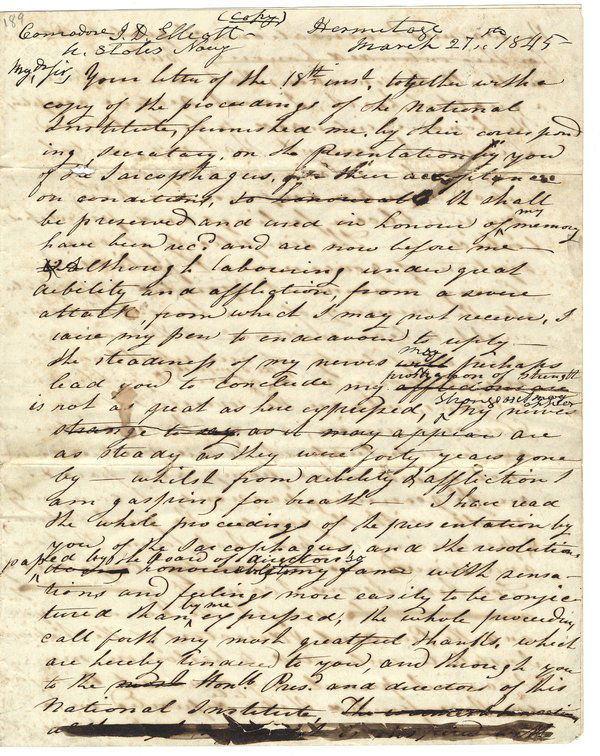 189
(Copy)
Comodore J. D Elliott Hermitage
U. States Navy March 27th 1845
My dr sir,
Your letter of the 18th inst, together with a
copy of the proceedings of the National
Institute, furnished me by their correspond
ing secretary, on the presentation by you
of the Sarcophagus, for their acceptance
on condition, so honourable th shall
be preserved and used in honour of my memory
have been recd. and are now before me
although labouring under great
debility and affliction, from a severe
attack, from which I may not recover, I
raise my pen to endeavour to reply—
the steadiness of my nerves may perhaps
lead you to conclude my prostration of strength
is not so great as here expressed, strange as it may appear My nerves
strange to say as it may appear are
as steady as they were forty years gone
by — whilst from debility & affliction I
am gasping for breath — I have read
the whole proceedings of the presentation by
you of the Sarcophagus, and the resolutions
passed by the Board of directors so
honourable to my fame with sensa-
tions and feelings more easily to be conjec
tured than by me expressed, the whole proceeding
call forth my most greatful thanks, which
are hereby tendered to you, and through you
to the Honbl. Pres. and directors of this
National Institute